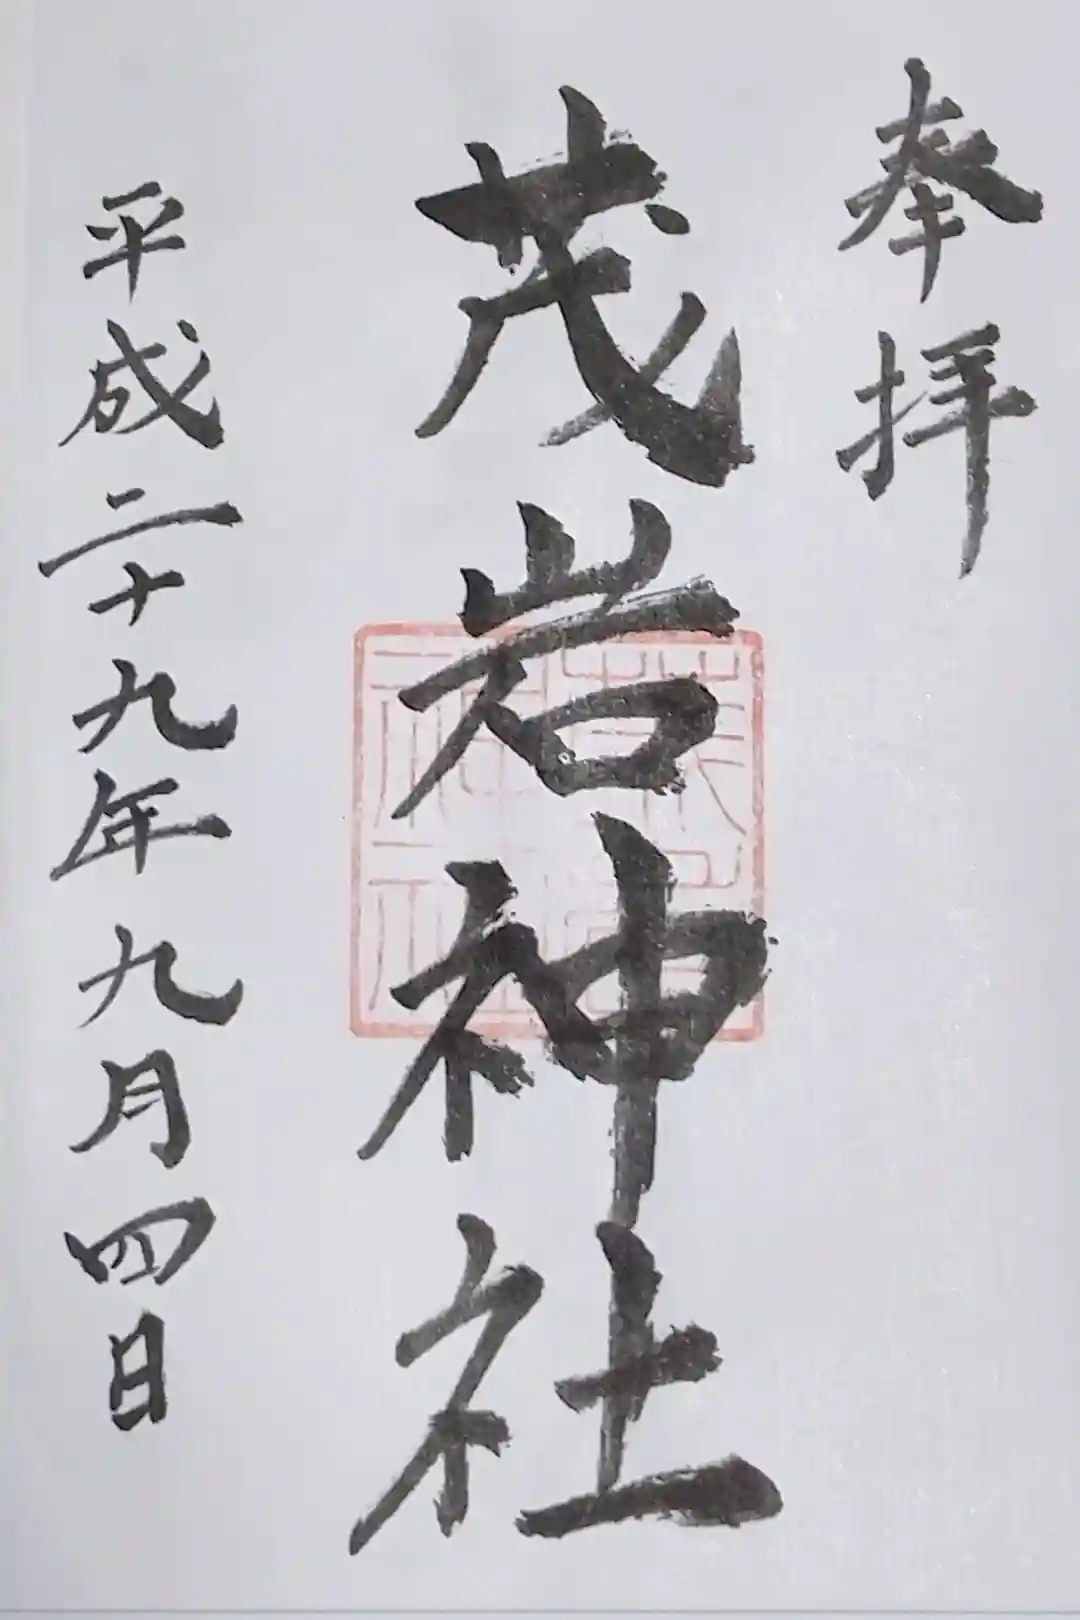 奉拝
茂岩神社
平成二十九年九月四日
茂岩
神社